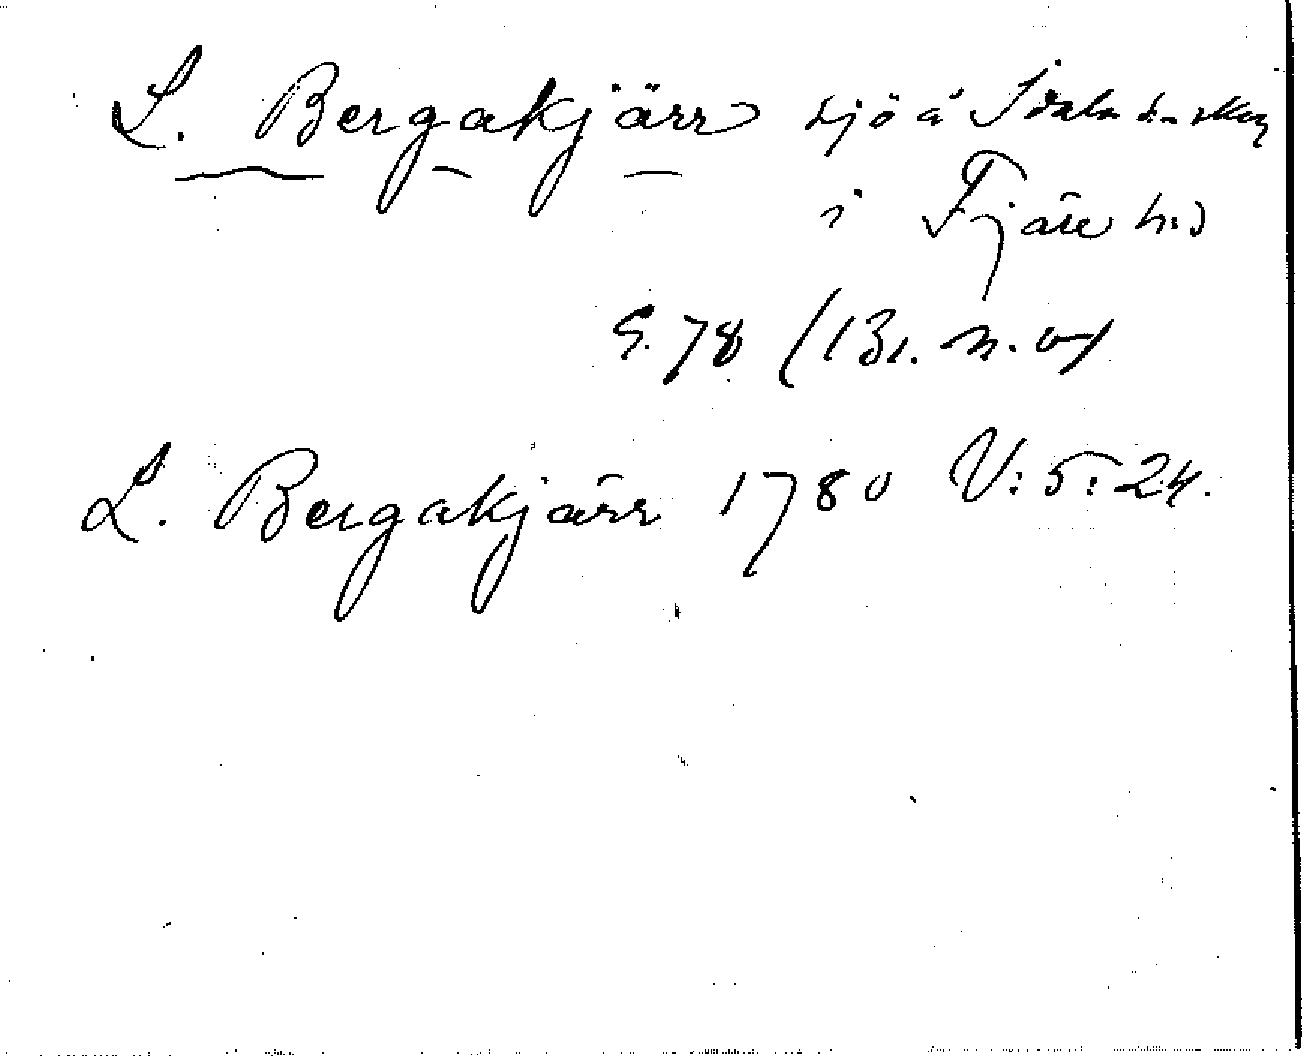 L. Bergakjärr sjö å Idala s-n skog
i Fjäre hd
S. 78 (131. n. o)
L. Bergakjärr 1780 V: 5: 24.